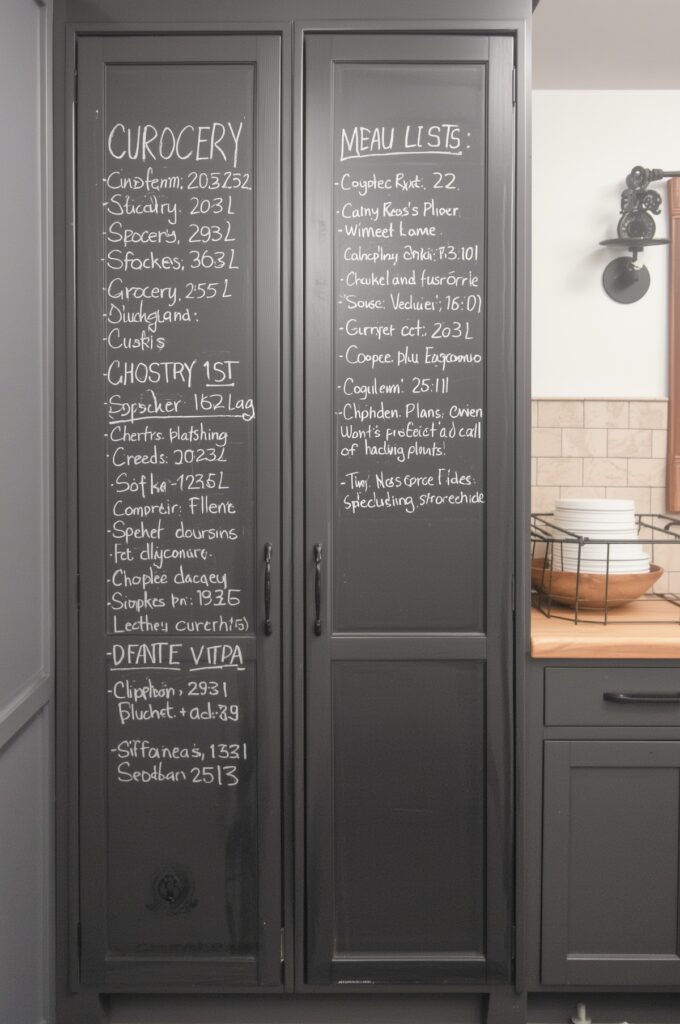 CUROCERY
-Cinsfenm; 203252
-Sticalry. 203L
-Spocery, 293L
-Sfockes, 363L
-Grocery, 255L
-Diuchgland:
-Cuskis
-GHOSTRY 1ST
-Sopscker 162Lag
-Chertrs. platshing
-Creeds: 2023L
-Sofka-1235L
Compretir: Fllent
-Spehet doursins
-Fct dlyconurc.
-Choplee dacqey
-Siopkes pn: 1935
Lecthey curerh(5)
-DFANTE VITPA
-Clipphon, 2931
Bluchct. + adc.89
-Siffaneas, 1331
Seodban 2513
MEAU LISTS:
-Coyplec Rxt. 22.
-Calny Reas's Plver.
-Wimeet Lame.
Cahcplny Snki: 73.101
-Chaukel and fusrorrie
-'Sousc: Veduier'; 16:0)
-Gurryet cct: 203L
-Coopce. plu Eagcomuo
-Cogulem: 25:111
-Chphden. Plans, Gvien
Wont's protect a'd call
of hadiing plonts!
-Tim. Nas corce Fides:
Speculsing, srorechide